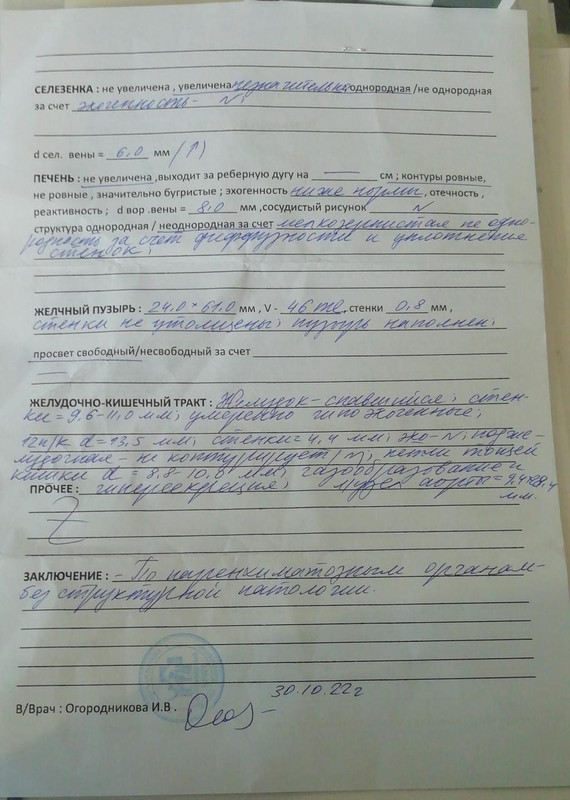 СЕЛЕЗЕНКА : не увеличена , увеличена незначительно, однородная /не однородная
за счет эхогенность - N;
d сел. вены = 6,0 мм (↑)
ПЕЧЕНЬ : не увеличена ,выходит за реберную дугу на — см ; контуры ровные,
не ровные , значительно бугристые ; эхогенность ниже нормы , отечность ,
реактивность ; d вор .вены = 8,0 мм ,сосудистый рисунок N
структура однородная / неоднородная за счет мелкозернистая не одно-
родность за счет диффузности и уплотнение
стенок;
ЖЕЛЧНЫЙ ПУЗЫРЬ : 24,0 × 61,0 мм , V - 46 ml, стенки 0,8 мм ,
стенки не утолщены; пузырь наполнен;
просвет свободный/несвободный за счет
—
ЖЕЛУДОЧНО-КИШЕЧНЫЙ ТРАКТ : Желудок - спавшийся; стен-
ки = 9,6-11,0 мм; умеренно гипоэхогенные;
12п/к d = 13,5 мм; стенки = 4,4 мм; эхо - N; подже-
лудочная - не контурирует; петли тощей
кишки d = 8,8-10,0 мм; газообразование и
ПРОЧЕЕ : гиперсекреция; аорты =
мм.
ЗАКЛЮЧЕНИЕ : - По паренхиматозным органам -
без структурной патологии.
30.10.22г
В/Врач : Огородникова И.В .